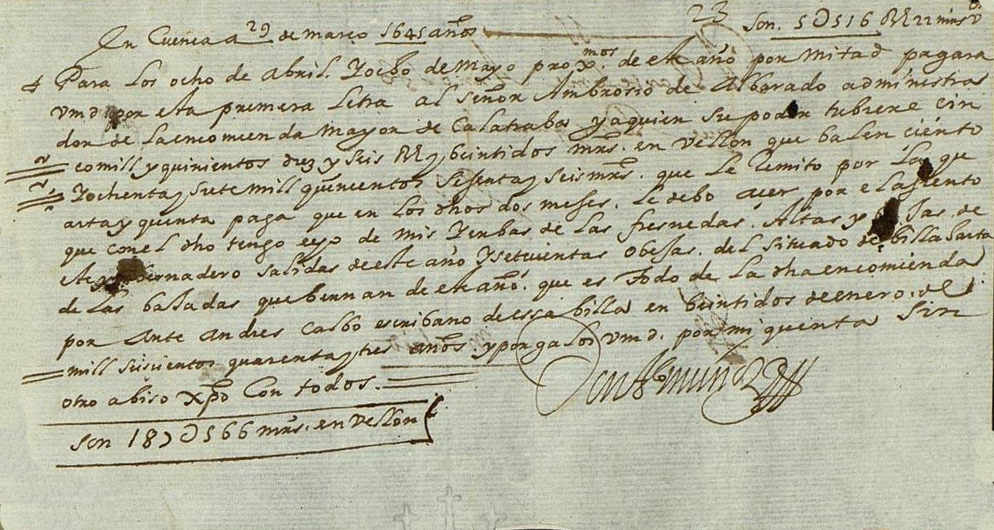 23 Son. 5U516 RR 22 mrs
En Cuenca a 29 de março 1645 años
Para Los ocho de Abril. Yocho de Mayo prox.mos de este año por mitad pagara
vmd por esta primera Letra al señor Ambrosio de Albarado administra
dor de la encomienda mayor de Calatraba y a quien su poder tubiere cin
co mill y quinientos diez y seis RR y beintidos mrs. en vellon que balen ciento
Yochenta y siete mill quinientos sesenta y seis mrs. que Le Remito por La que
arta y quinta paga que en Los dhos dos meses. Le debo acer por el asiento
que con el dho tengo eço de mis Yerbas de Las fresnedas. Altas y jas. de
de este año Y setecientas obejas. del situado de billa
de Las bajadas que bernan de este año. que es todo de La dha encomienda
por Ante Andres Calbo escribano de essa billa en beintidos de enero. del
mill seiscientos quarenta y tres años. y pongalos vmd. por mi quenta sin
otro abiso Xpo Con todos.
Son 187U566 mrs. en vellon